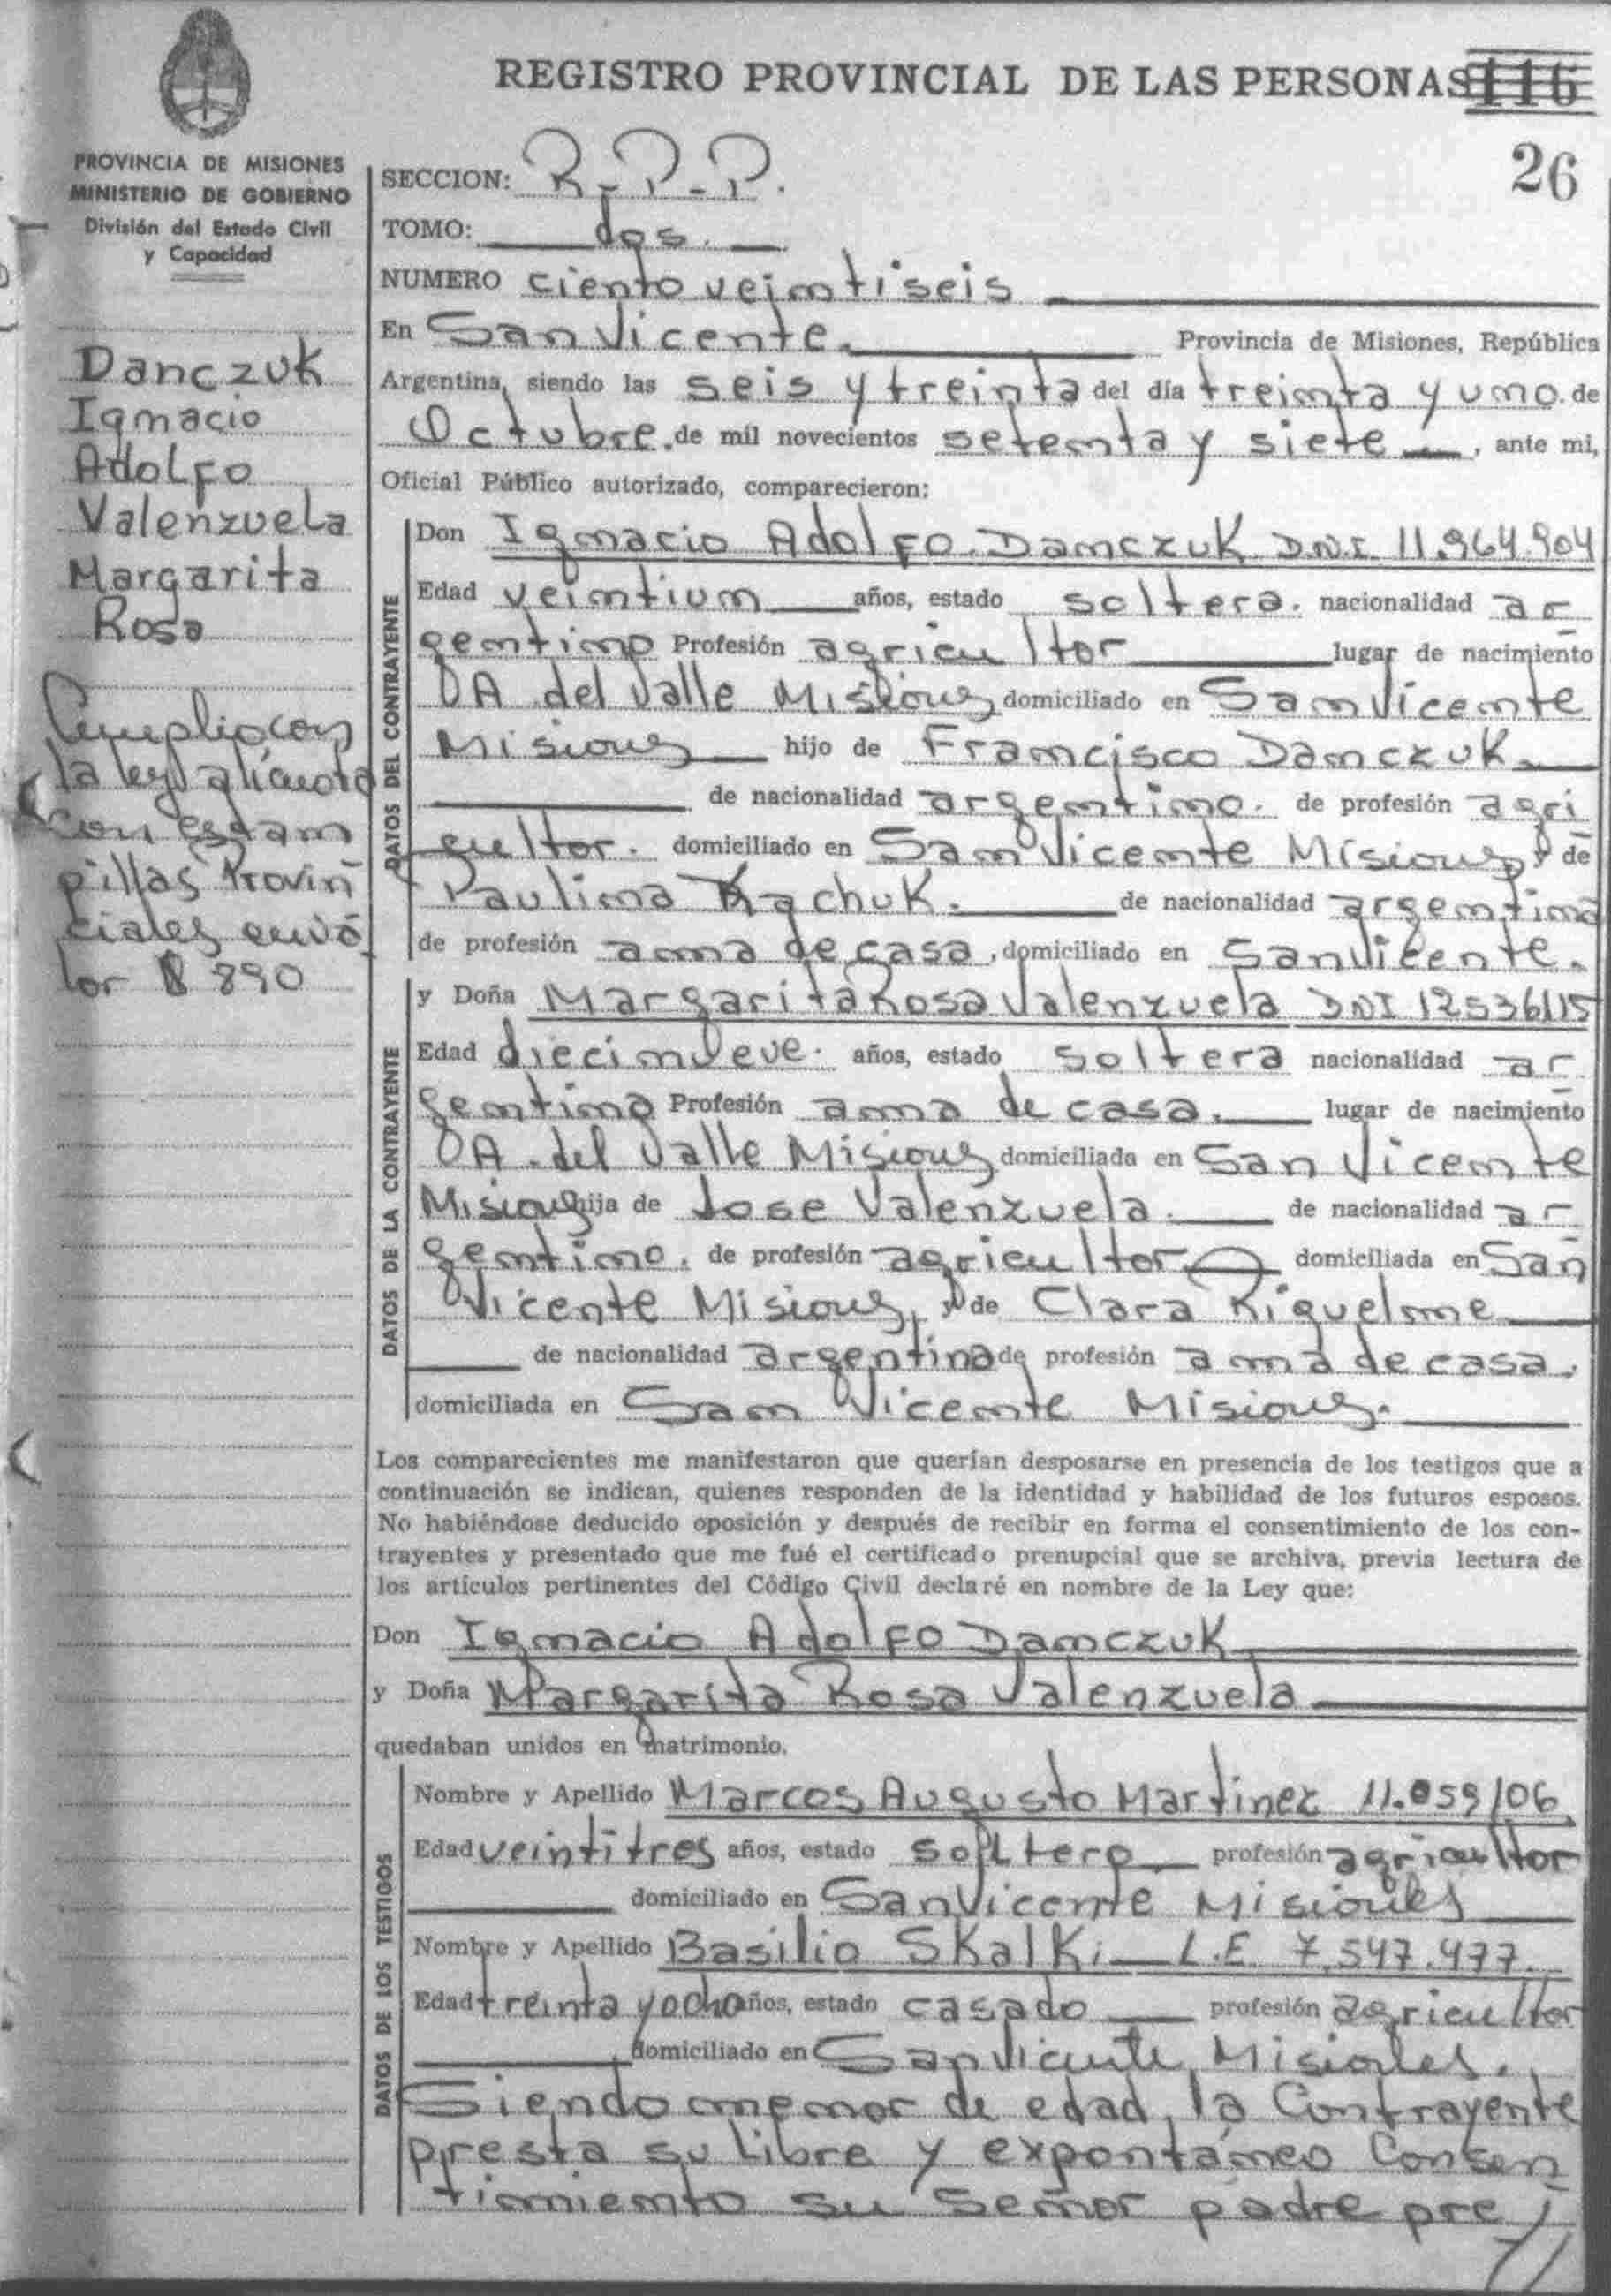 REGISTRO PROVINCIAL DE LAS PERSONAS 116
26
PROVINCIA DE MISIONES
MINISTERIO DE GOBIERNO
División del Estado Civil
y Capacidad
Danczuk
Ignacio
Adolfo
Valenzuela
Margarita
Rosa
Cumplio con
la ley alicuota
con estam
pillas Provin
ciales en va
lor $ 890
SECCION: R.P.P.
TOMO: dos.
NUMERO ciento veintiseis
En San Vicente. Provincia de Misiones, República
Argentina, siendo las seis y treinta del día treinta y uno. de
Octubre. de mil novecientos setenta y siete, ante mi,
Oficial Público autorizado, comparecieron:
DATOS DEL CONTRAYENTE
Don Ignacio Adolfo Danczuk D.N.I. 11.964.904
Edad veintiun años, estado soltera. nacionalidad ar
gentino Profesión agricultor lugar de nacimiento
DA del Valle Misiones domiciliado en San Vicente
Misiones hijo de Francisco Danczuk.
de nacionalidad argentino. de profesión agri
cultor. domiciliado en San Vicente Misiones y de
Paulina Kachuk. de nacionalidad argentina
de profesión ama de casa, domiciliado en San Vicente.
DATOS DE LA CONTRAYENTE
y Doña Margarita Rosa Valenzuela DNI 12536115
Edad diecinueve. años, estado soltera nacionalidad ar
gentina Profesión ama de casa. lugar de nacimiento
DA. del Valle Misiones domiciliada en San Vicente
Misiones hija de Jose Valenzuela. de nacionalidad ar
gentino. de profesión agricultor domiciliada en San
Vicente Misiones, y de Clara Riquelme
de nacionalidad argentina de profesión ama de casa.
domiciliada en San Vicente Misiones.
Los comparecientes me manifestaron que querían desposarse en presencia de los testigos que a
continuación se indican, quienes responden de la identidad y habilidad de los futuros esposos.
No habiéndose deducido oposición y después de recibir en forma el consentimiento de los con-
trayentes y presentado que me fué el certificado prenupcial que se archiva, previa lectura de
los artículos pertinentes del Código Civil declaré en nombre de la Ley que:
Don Ignacio Adolfo Danczuk
y Doña Margarita Rosa Valenzuela
quedaban unidos en matrimonio.
DATOS DE LOS TESTIGOS
Nombre y Apellido Marcos Augusto Martinez 11.059106
Edad veintitres años, estado soltero profesión agricultor
domiciliado en San Vicente Misiones
Nombre y Apellido Basilio Skalki L.E 7.547.477.
Edad treinta y ocho años, estado casado profesión agricultor
domiciliado en San Vicente Misiones.
Siendo menor de edad, la Contrayente
presta su libre y expontáneo Consen
timiento su señor padre pre//